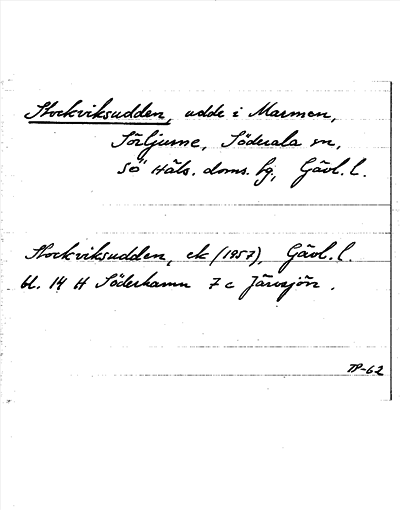 Stockviksudden, udde i Marmen,
Sörljusne, Söderala sn,
SÖ Häls. doms. hg, Gävl. l.
Stockviksudden, ek (1957), Gävl. l.
bl. 14 H Söderhamn 7 c Järvsjön.
TP-62